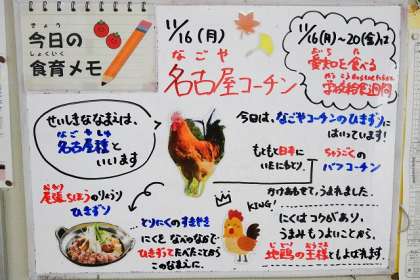 きょう
今日の
しょくいく
食育メモ
11/16(月)
なごや
名古屋コーチン
11/16(月)~20(金)は
あいち
愛知を食べる
がっこうきゅうしょくしゅうかん
学校給食週間
せいしきななまえは、
なごやしゅ
名古屋種と
いいます
今日は、なごやコーチンのひきずりに
はいっています!
もともと日本に
いたにわとりと
ちゅうごくの
バフコーチン
をかけあわせて、うまれました。
おわり
尾張ちほうのりょうり
ひきずり
とりにくのすきやき
にくを、なべのなかで
ひきずってたべたことから
このなまえに。
KING!
にくはコクがあり、
うまみもつよいことから、
じどり おうさま
地鶏の王様ともよばれます。